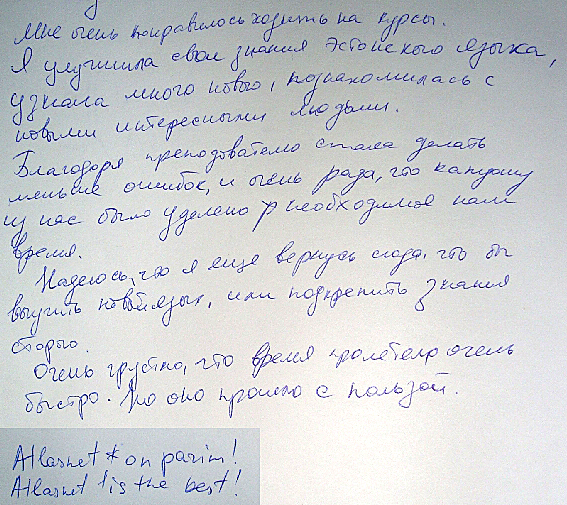 Мне очень понравилось ходить на курсы.
Я улучшила свои знания Эстонского языка,
узнала много нового, познакомилась с
новыми интересными людьми.
Благодаря преподователю стала делать
меньше ошибок, и очень рада, что каждому
из нас было уделено необходимое нам
время.
Надеюсь, что я еще вернусь сюда, что бы
выучить новый язык, или подкрепить знания
старого.
Очень грустно, что время пролетело очень
быстро. Но оно прошло с пользой.
Atlasnet * on parim!
Atlasnet is the best!